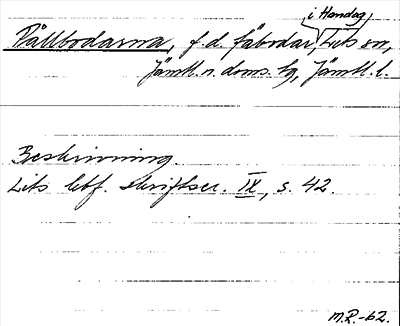 i Handog,
Pållbodarna, f.d. fäbodar, Lits sn,
Jämtl. n. doms. tg, Jämtl. l.
Beskrivning.
Lits hbf. skriftser. IX, s. 42.
M.R.-62.